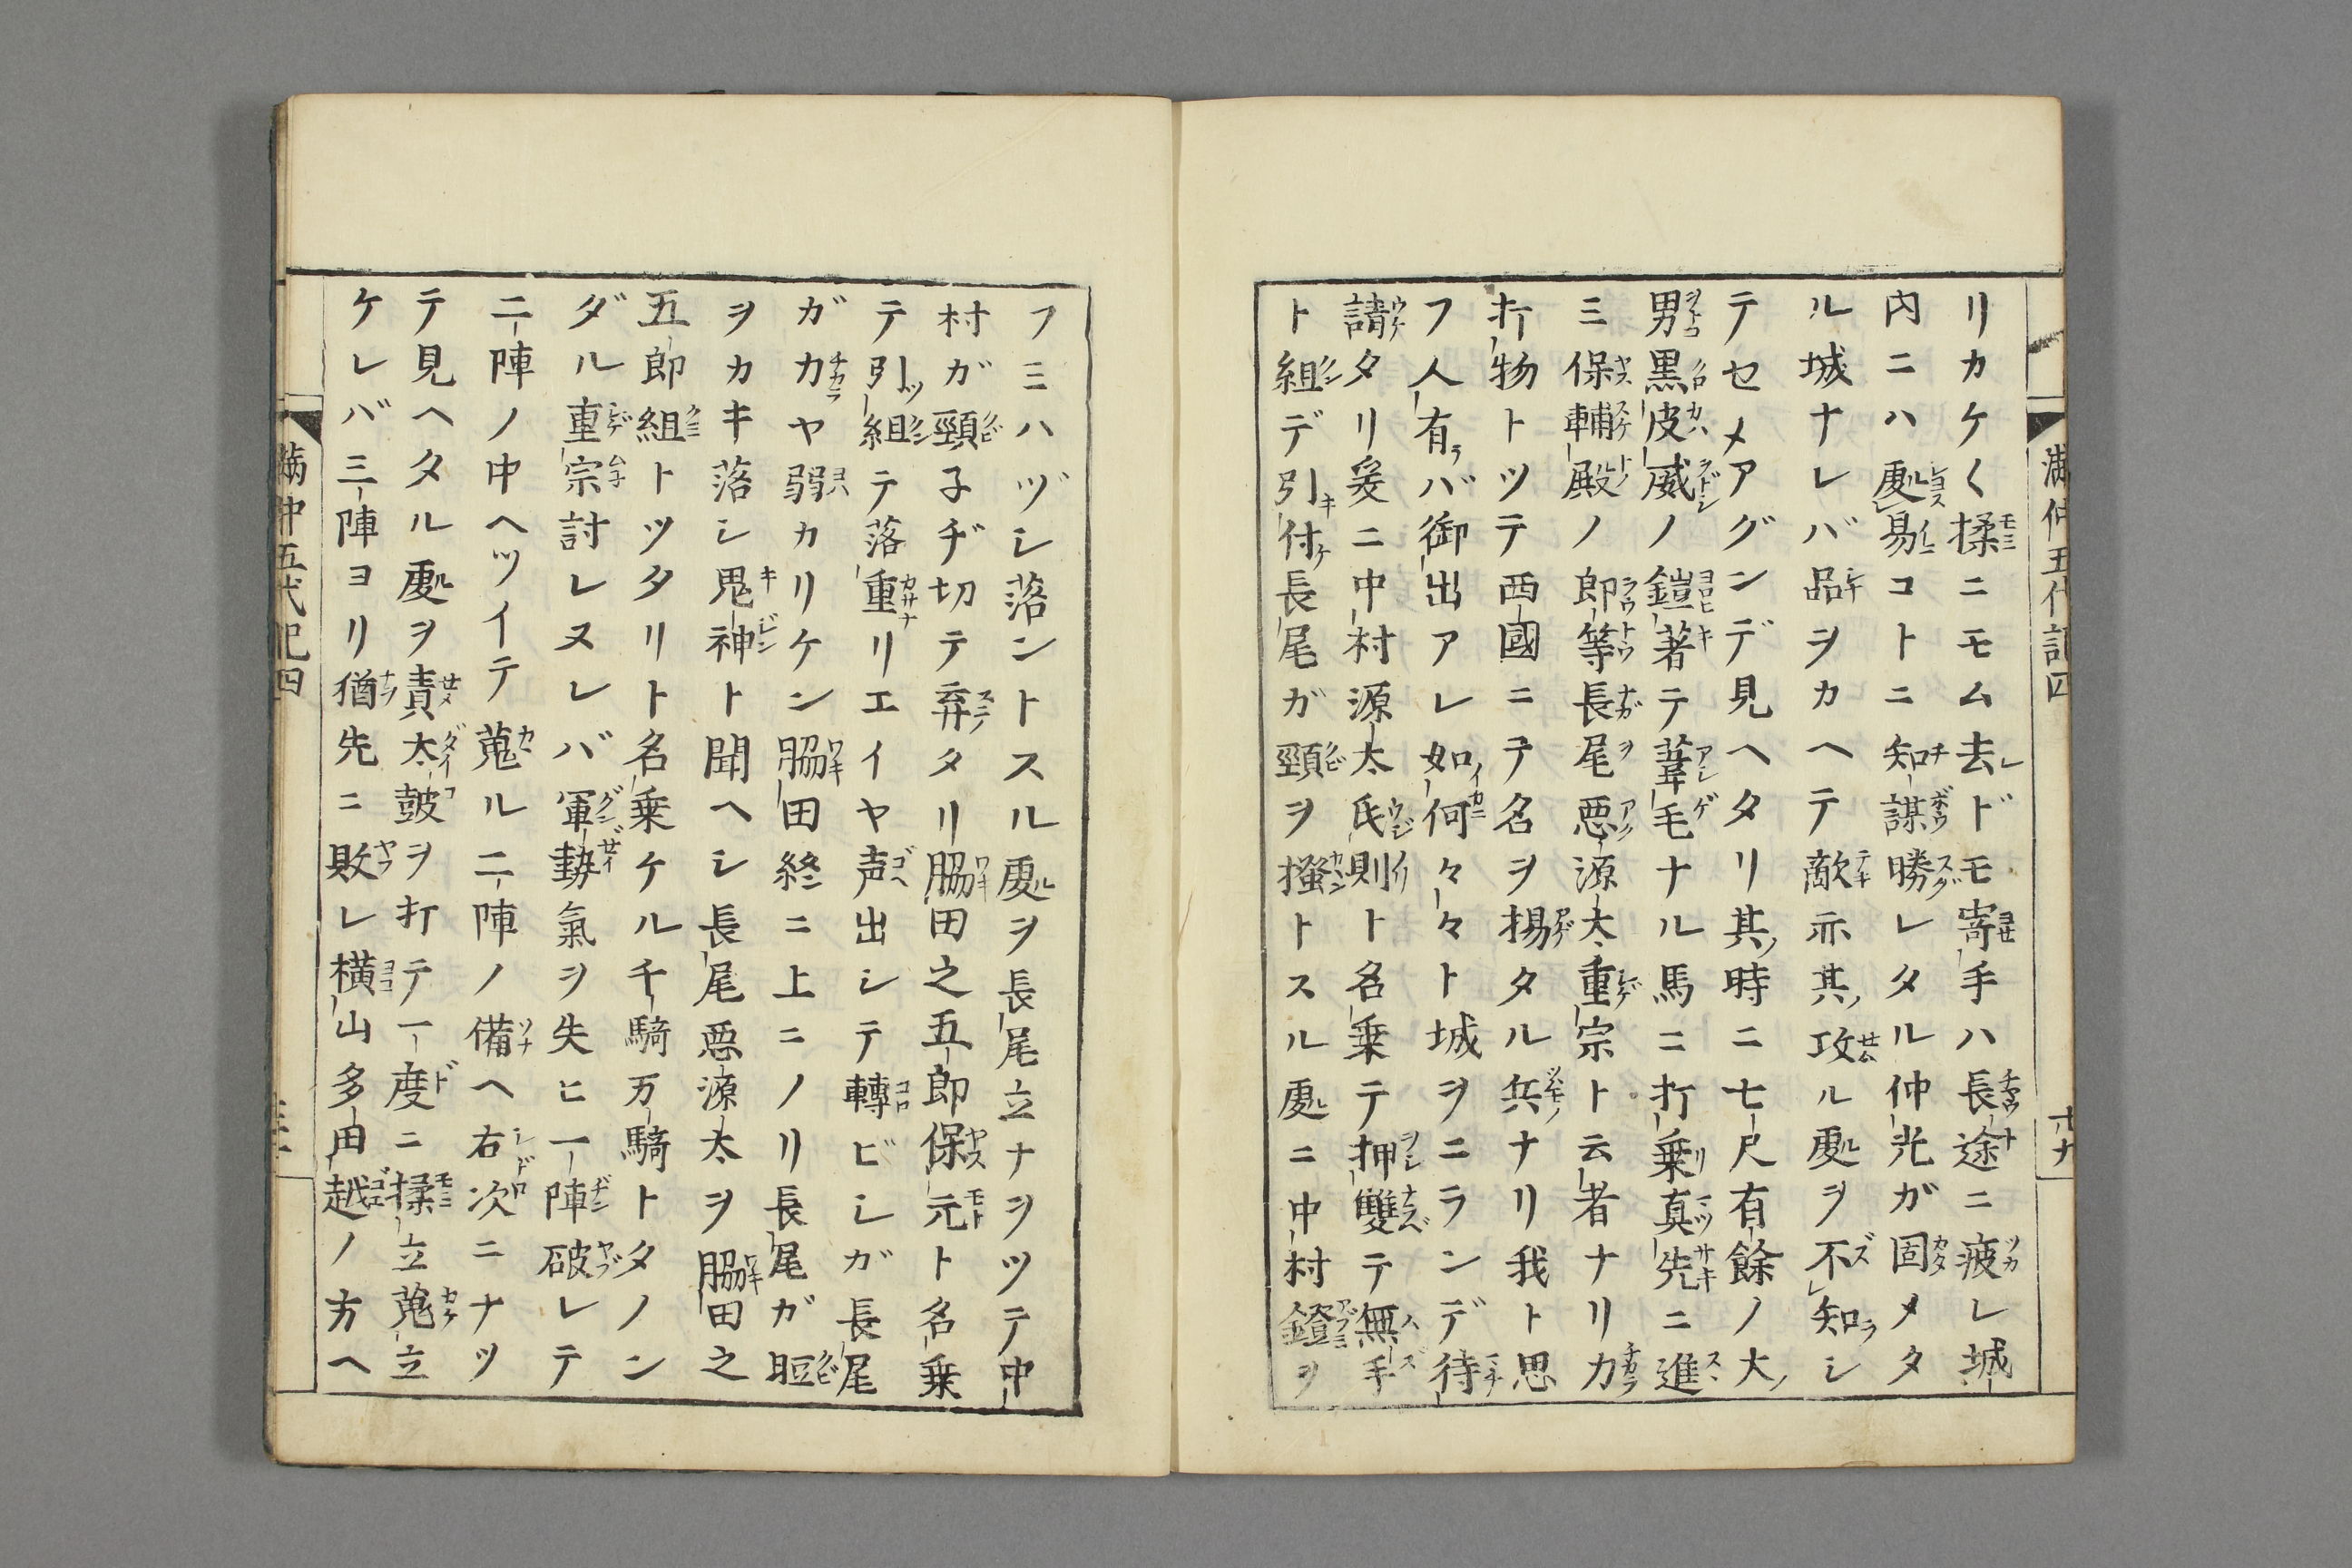 リカケ〱揉ニモム去ドモ寄手ハ長途ニ疲レ城
内ニハ𠁅易コトニ知謀勝レタル仲光ガ固メタ
ル城ナレバ品ヲカヘテ敵亦其攻ル處ヲ不知シ
テセメアグンデ見ヘタリ其時ニ七尺有餘ノ大
男黒皮威ノ鎧著テ葦毛ナル馬ニ打乗真先ニ進
ミ保輔殿ノ郎等長尾悪源太重宗ト云者ナリカ
打物トツテ西國ニテ名ヲ揚タル兵ナリ我ト思
フ人有バ御出アレ如何々々ト城ヲニランデ待
請タリ爰ニ中村源太氏則ト名乗テ押雙テ無手
ト組デ引付長尾ガ頸ヲ搔トスル處ニ中村鐙ヲ
フミハヅシ落ントスル處ヲ長尾立ナヲツテ中
村ガ頸子ヂ切テ弃タリ脇田之五郎保元ト名乗
テ引組テ落重リエイヤ声出シテ轉ビシガ長尾
ガカヤ弱カリケン脇田終ニ上ニノリ長尾ガ脰
ヲカキ落シ鬼神ト聞ヘシ長尾悪源太ヲ脇田之
五郎組トツタリト名乗ケル千騎万騎トタノン
ダル重宗討レヌレバ軍勢氣ヲ失ヒ一陣破レテ
二陣ノ中ヘツイテ蒐ル二陣ノ備ヘ右次ニナツ
テ見ヘタル處ヲ責太鼓ヲ打テ一度ニ揉立蒐立
ケレバ三陣ヨリ猶先ニ敗レ横山多田越ノ方ヘ